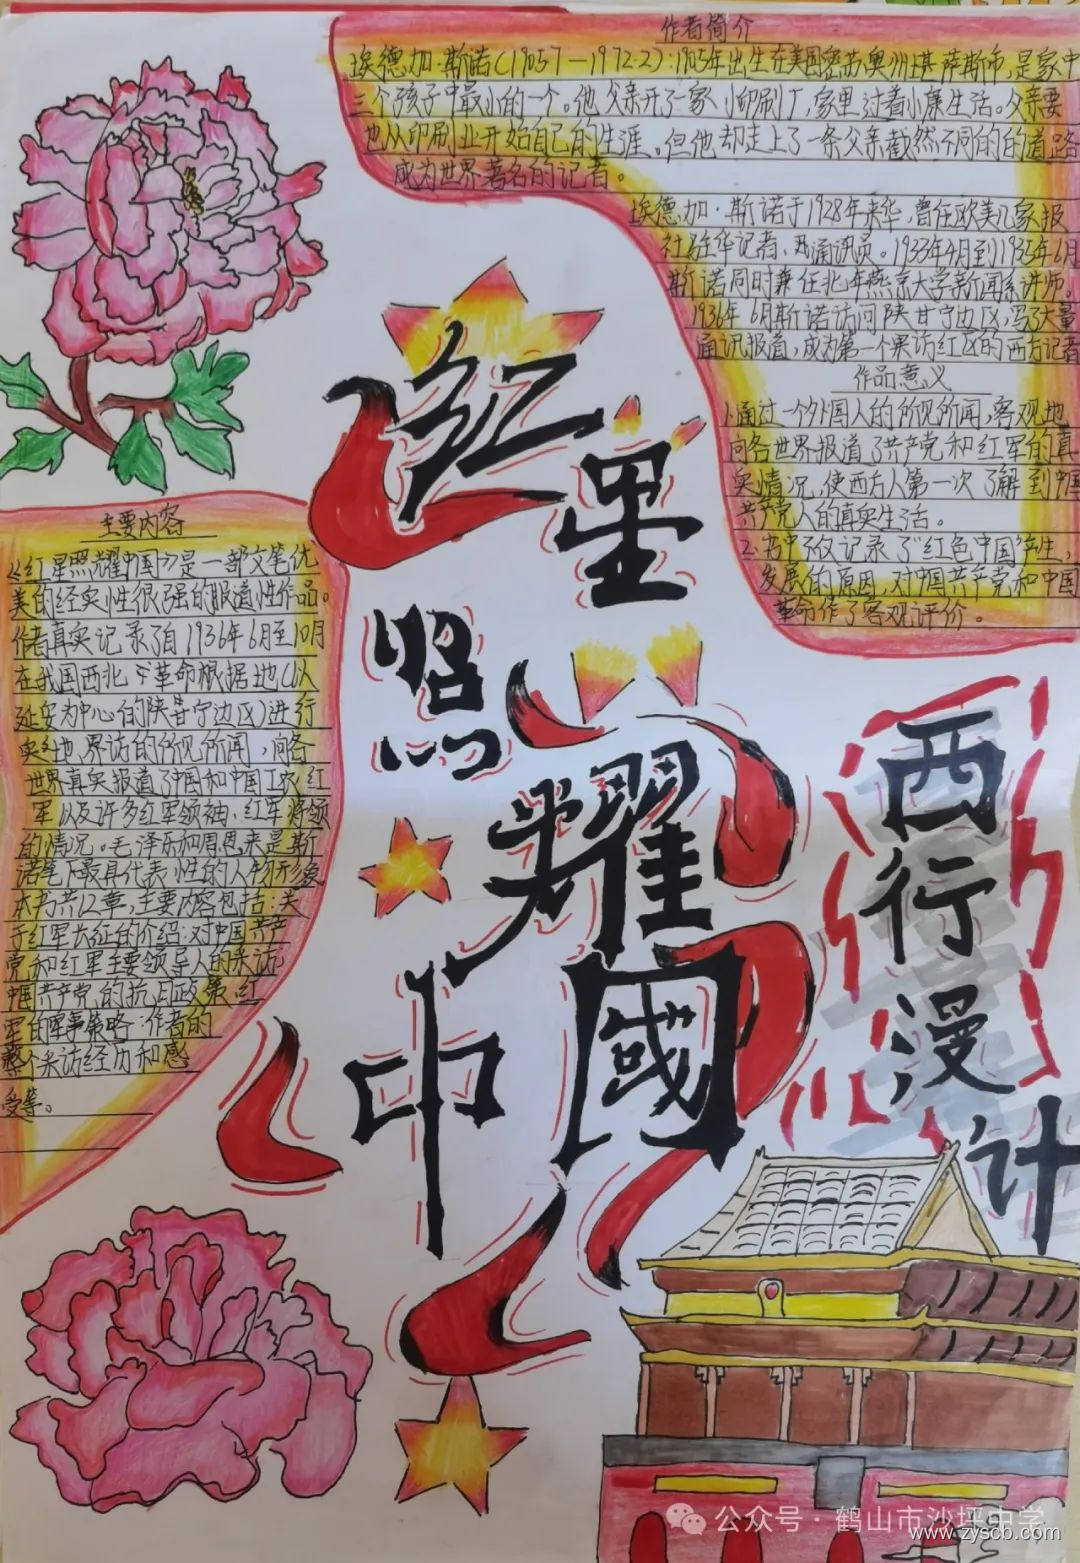 作者简介
埃德加·斯诺(1905.7—1972.2):1905年出生在美国密苏里州堪萨斯市,是家中
三个孩子中最小的一个。他父亲开了一家小印刷厂,家里过着小康生活。父亲要
他从印刷业开始自己的生涯。但他却走上了一条父亲截然不同的的道路
成为世界著名的记者。
埃德加·斯诺于1928年来华,曾任欧美几家报
社驻华记者、通讯员。1933年4月到1935年6月
斯诺同时兼任北平燕京大学新闻系讲师。
1936年6月斯诺访问陕甘宁边区,写了大量
通讯报道,成为第一个采访红区的西方记者
作品意义
1.通过一个外国人的所见所闻,客观地
向各世界报道了共产党和红军的真
实情况,使西方人第一次了解到中国
共产党人的真实生活。
2.书中不仅记录了"红色中国"产生,
发展的原因,对中国共产党和中国
革命作了客观评价。
主要内容
《红星照耀中国》是一部文笔优
美的纪实性很强的报道性作品。
作者真实记录了自1936年6月至10月
在我国西北革命根据地(以
延安为中心的陕甘宁边区)进行
实地采访的所见所闻,向各
世界真实报道了中国和中国工农红
军以及许多红军领袖、红军将领
的情况。毛泽东和周恩来是斯
诺笔下最具代表性的人物形象
本书共12章,主要内容包括:关
于红军长征的介绍;对中国共产
党和红军主要领导人的采访;
中国共产党的抗日政策,红
军的军事策略;作者的
整个采访经历和感
受等。
红星
照耀
中國
西行漫计
公众号·鹤山市沙坪中学
www.zyscb.com